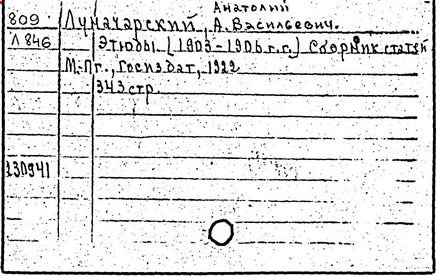 Анатолий
809 Луначарский, А. Васильевич.
Л846 Этюды. [1903-1906 г.г.] Сборник статей
М.-Пг., Госиздат, 1922
343 стр.
130941